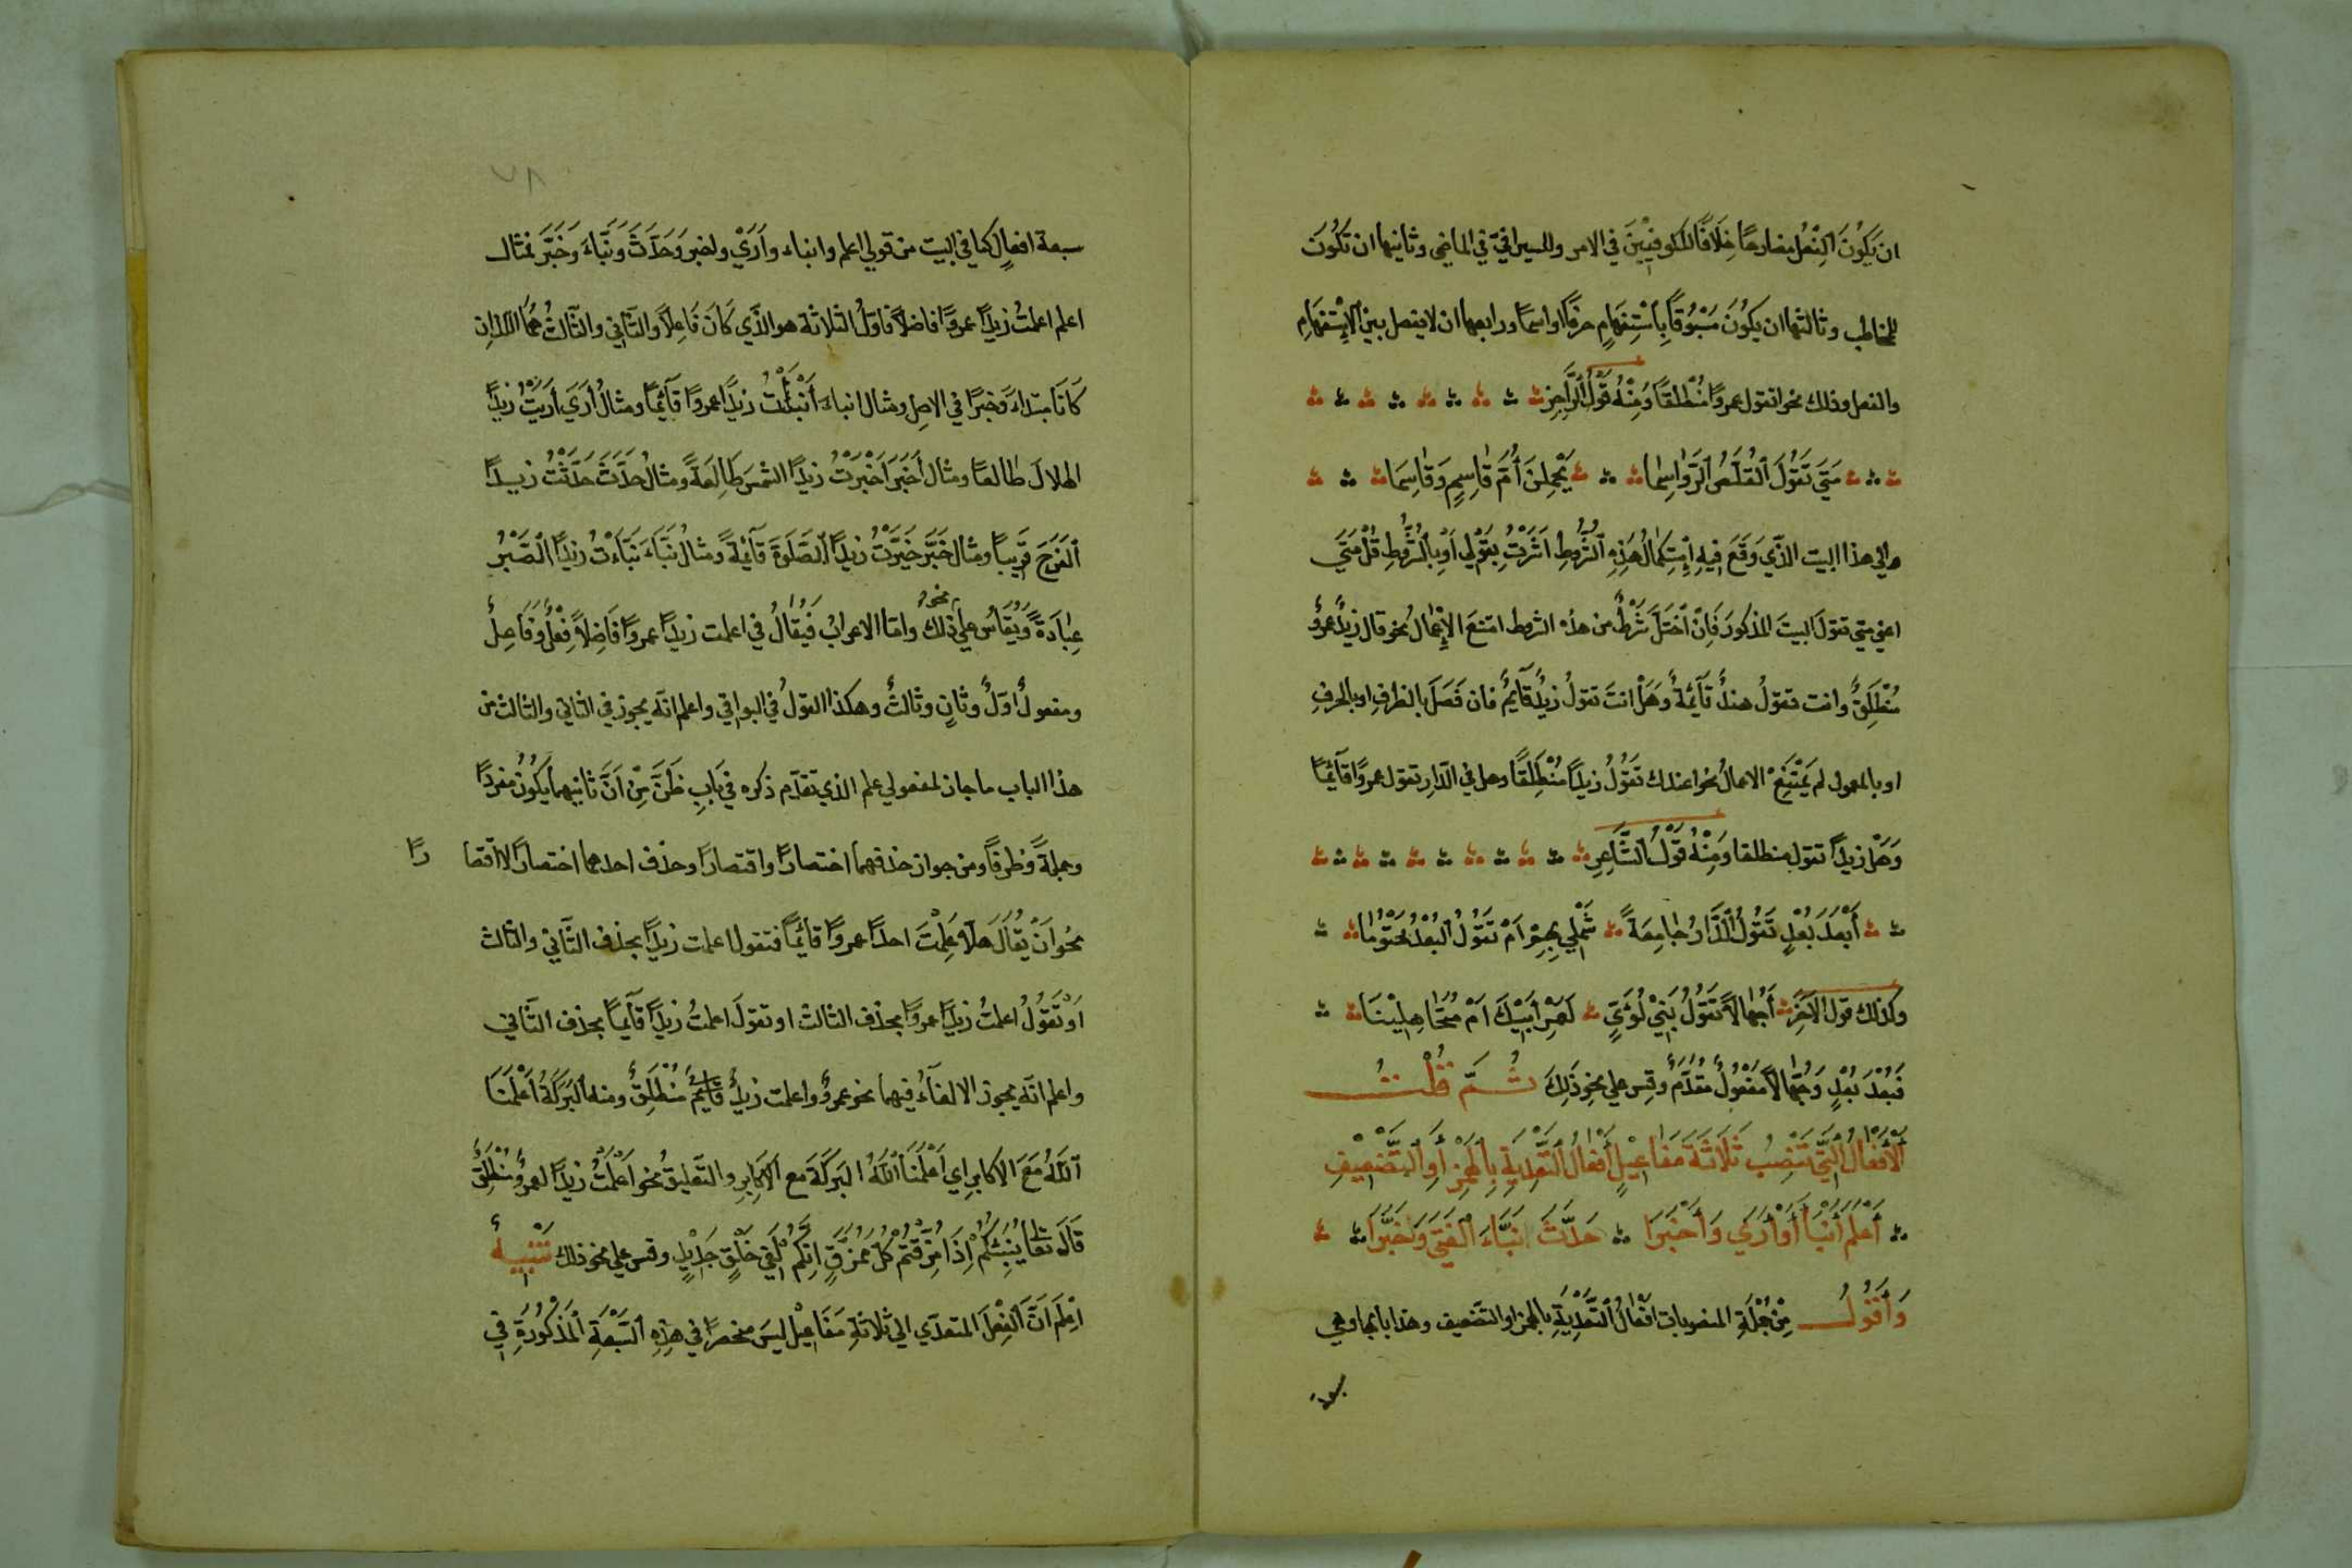 ان يَكُونَ الفِعْلُ مضارعًا خِلَافًا للكوفِيّينَ في الامر وللسيرافيّ في الماضى وثانيها ان تَكُونَ
للمخاطب وثالثها ان يكَونَ مَسْبُوقًا بِاسْتِفهَامٍ حرفًا او اسمًا ورابعها ان لا يفصل بين الاِسْتِفهَامِ
والفعل وذلك نحو اتقول عمروًا مُنْطلقًا وَمِنْهُ قَوْلُ الرَّاجِزِ
مَتَى تَقُولُ القُلَّصُ الرَّوَاسِمَا يَحْمِلنَ أُمَّ قَاسِمٍ وَقَاسِمَا
والي هذا البيت الذَّي وَقَعَ فيهِ اِسْتِكمَالُ هَذِهِ الشُّرُوطِ اشَرْتُ بِقَوْلِي اَوْ بِالشُّرُوطِ قُلْ مَتَى
اعني متي تقول البيتَ المذكورَ فَاِنْ اخْتَلَّ شَرْطٌ من هذه الشروط امتنعَ الاِعْمَالُ نحو قال زيدٌ عمروٌ
مُنْطَلِقٌ وانت تقولُ هندٌ قَآئِمَةٌ وَهَلْ انتَ تقولُ زيدٌ قَآئِمٌ فان فَصَلَ بالظرفِ او بالحرفِ
او بالمعمول لم يَمْتَنِعْ الاعمالُ نحو اعندك تَقُولُ زيدًا مُنْطَلِقًا وهل في الدّارِ تقول عمروًا قآئِمًا
وَهَل زيدًا تقول منطلقا وَمِنْهُ قَوْلُ الشَّاعِرِ
أَبَعْدَ بُعْدٍ تَقُولُ الدَّارُ جَامِعَةً شَمْلِي بِهِمْ اَمْ تَقُولُ البُعْدُ مَحْتُومَا
وكذلك قول الاخَرِ أَجُهَّالاً تَقُولُ بَنِي لُؤَيٍّ لَعَمْرُ أَبِيْكَ اَمْ مُتَجَاهِلِيْنَا
فَبُعْدَ بُعْدٍ وَجُهَّالاً مَفْعُولٌ مُقَدَّمٌ وقس علي نحو ذَلِكَ ثُمَّ قُلْتُ
اَلْأَفْعَالُ الَّتِي تَنْصِبُ ثَلَاثَةَ مَفَاعِيْلٍ أَفْعَالُ التَّعْدِيَةِ بِالْهَمْزِ أَوِ التَّضْعِيفِ
أَعْلَمَ أَنْبَأَ أَوْ أَرَي وَأَخْبَرَا حَدَّثَ نَبَّاءَ الفَتَى وَخَبَّرَا
وَأَقُولُ مِنْ جُمْلَةِ المنصوبات افْعَالُ التَّعْدِيَةِ بالهمز او التَّضعيف وهذا بابها وهي
سبعة
٧٨
سبعة افعالٍ كما في البيت من قولي اعلم وانباء واَرَيْ واخبر وَحَدَّثَ وَنَبَّاءَ وَخَبَّرَ فمثال
اعلم اعلمتُ زيدًا عمروًا فاضلاً فاولُ الثلاثة هو الذّي كَانَ فَاعِلاً والثَّاني والثَّالثُ هُمَا اللَّذانِ
كَانَا مبتداءً وَخبرًا في الاصل ومثال انباءَ أَنْبَأْتُ زيدًا عمروًا قآئِمًا ومثالُ أرَيَ أرَيْتُ زيدًا
الهلالَ طالعًا ومثال أخبَرَ اَخْبَرْتُ زيدًا الشمسَ طَالِعَةً ومثالُ حَدَّثَ حَدَّثْتُ زيدًا
الفَرَجَ قَرِيبًا ومثال خَبَّرَ خَبَّرْتُ زيدًا الصَّلوةَ قآئِمَةً ومثالُ نَبَّاءَ نَبَّاءْتُ زيدًا الصَّبْرَ
عِبَادَةً وَيُقَاسُ علي نحو ذلك وامّا الاعرابُ فَيُقَالُ في اعلمت زيدًا عمروًا فَاضِلاً فِعْلٌ وَفَاعِلٌ
ومفعولٌ اوَلٌ وثَانٍ وثَالثٌ وهكذا القولُ في البواقي واعلم انّه يجوز في الثاني والثالث من
هذا الباب ما جاز لمفعولي علم الذي تقدّم ذكره في بَابِ ظَنَّ مِنْ اَنَّ ثانيهما يَكُونُ مفردًا
وجملةً وظرفًا ومن جواز حذفهما اختصارًا واقتصارًا وحذف احدهما اختصارًا لا اقتصا رًا
نحو اَنْ يُقَالَ هَلْ اَعْلَمْتَ احدًا عمروًا قآئِمًا فتقول اعلمت زيدًا بحذف الثَّاني والثالث
اَوْ تَقُولُ اعلمتُ زيدًا عمروًا بحذف الثالث او تقولَ اعلمتُ زيدًا قآئِمًا بحذف الثَّاني
واعلم انّه يجوز الالغآءُ فيهما نحو عمروٌ اعلمت زيدًا قائمٌ مُنْطَلِقٌ ومنه البَرَكَةُ اَعْلَمَنَا
اللّهُ مَعَ الاكابرِ اي اَعْلَمَنَا اللّهُ البَرَكَةَ مع الاكَابِرِ والتّعليقُ نحو اَعْلَمْتُ زيدًا لعمروٌ منْطَلِقٌ
قَالَ تعَا يُنَبِّئُكُمْ اِذَا مُزِّقْتُمْ كُلَّ مُمَزَّقٍ اِنَّكُمْ لَفِي خَلْقٍ جَدِيْدٍ وقس علي نحو ذلك تَنْبِيهٌ
اِعْلَم اَنَّ الْفِعْلَ المتعدّي الي ثلاثةِ مَفَاعِيْلٍ ليسَ منحصرًا في هذِهِ السَّبْعَةِ الْمَذْكُورَةِ في